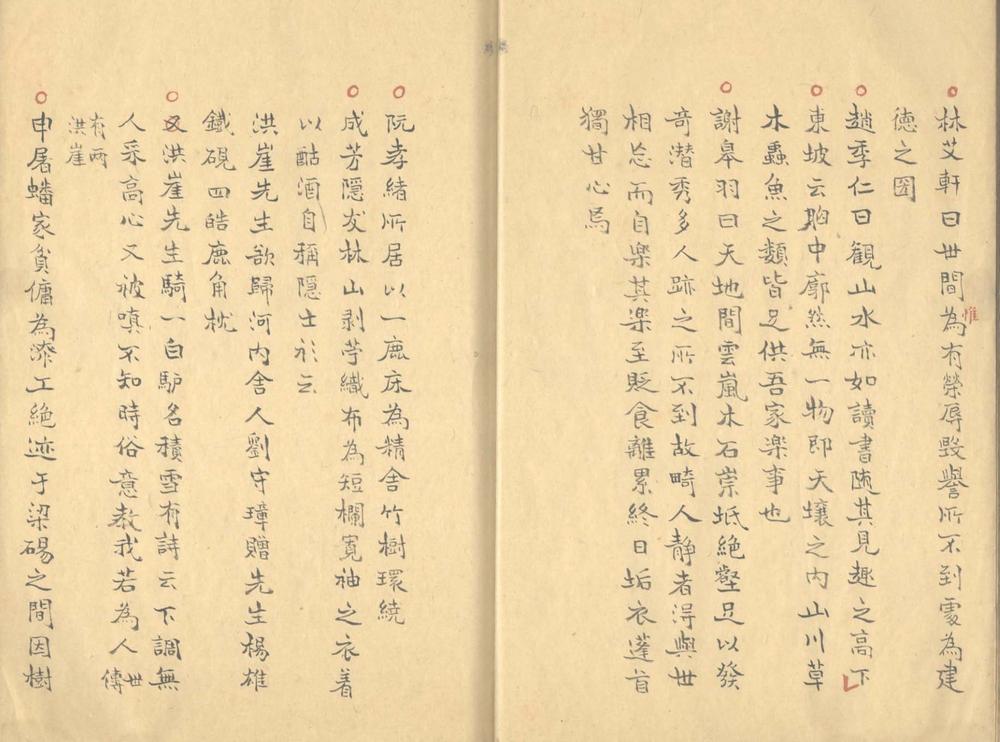 林艾軒曰世間惟為有榮辱毀譽所不到處為建
德之國
趙季仁曰觀山水亦如讀書随其見趣之高下
東坡云胸中廓然無一物即天壤之内山川草
木蟲魚之類皆足供吾家楽事也
謝皋羽曰天地間雲嵐木石崇坻絶壑足以發
奇潜秀多人跡之所不到故畸人静者淂與世
相忘而自楽其楽至貶食離累終日垢衣蓬首
獨甘心焉
阮孝緒所居以一鹿床為精舎竹樹環繞
成芳隱友林山剥苧織布為短襴寛袖之衣着
以酤酒自稱隱士衫云
洪崖先生欲歸河内舎人劉守璋贈先生楊雄
鐵硯四皓鹿角枕
又洪崖先生騎一白馿名積雪有詩云下調無
人采高心又被嗔不知時俗意教我若為人世傳
有兩洪崖
申屠蟠家貧傭為漆工絶迹于梁碭之間因樹